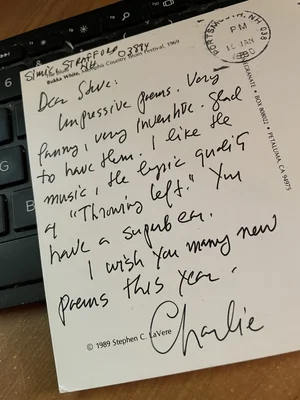 SIMIC, STRAFFORD
NH 03884
Bukka White, Memphis Country Blues Festival, 1969
PORTSMOUTH, NH 038
PM
10 JAN
1990
POMEGRANATE • BOX 808022 • PETALUMA, CA 94975
Dear Steve:
Impressive poems. Very
funny, very inventive. Glad
to have them. I like the
music, the lyric quality
of "Throwing Left." You
have a superb ear.
I wish you many new
poems this year.
Charlie
© 1989 Stephen C. LaVere